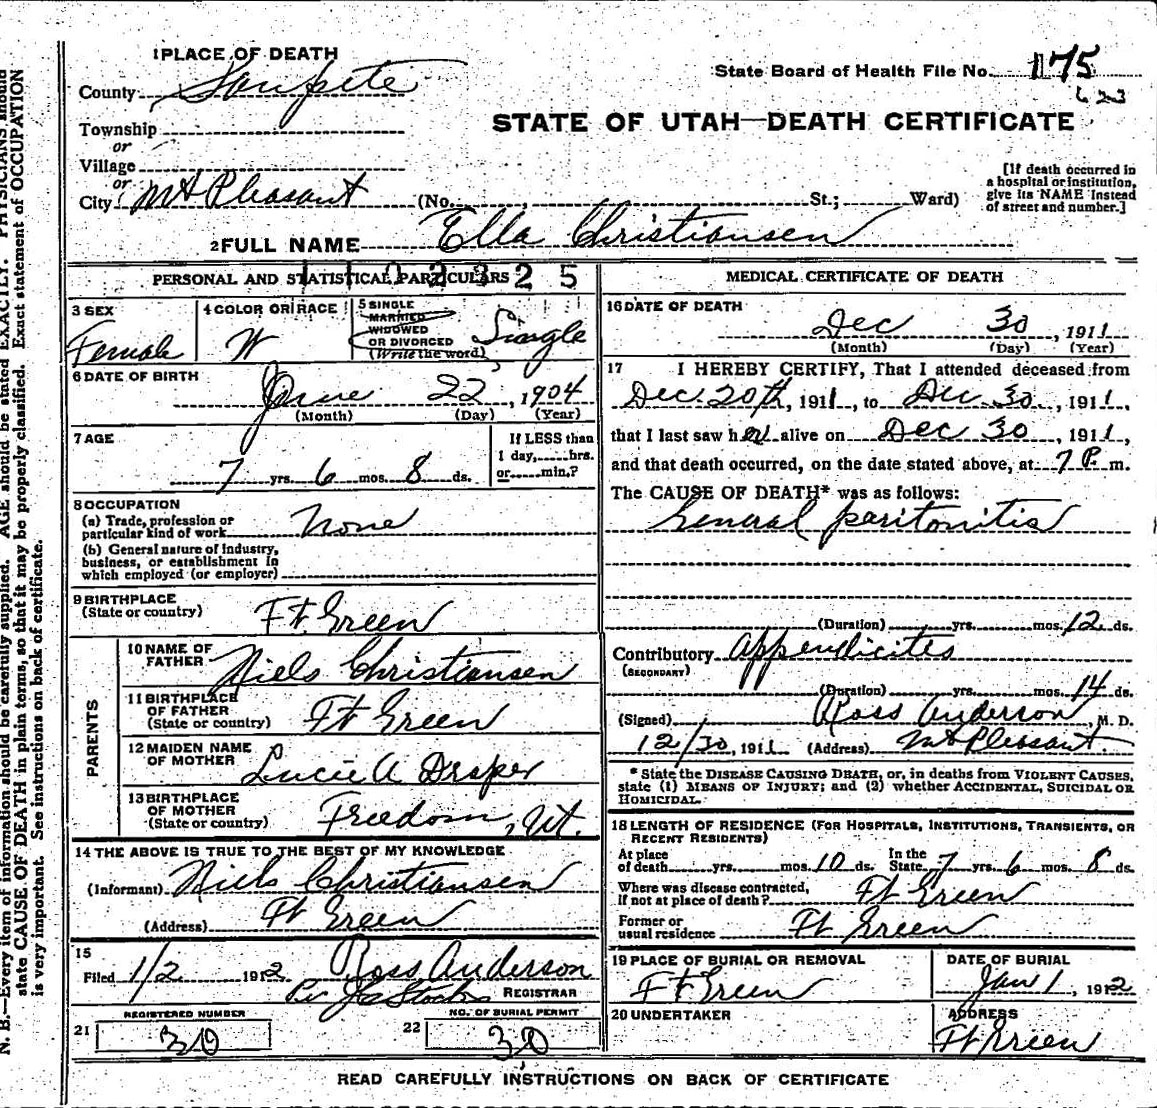 1 PLACE OF DEATH
County Sanpete
State Board of Health File No. 175
623
Township
or
Village
or
City Mt Pleasant (No. , St.; Ward)
STATE OF UTAH—DEATH CERTIFICATE
[If death occurred in
a hospital or institution,
give its NAME instead
of street and number.]
2 FULL NAME Ella Christiansen
PERSONAL AND STATISTICAL PARTICULARS
1102325
3 SEX
Female
4 COLOR OR RACE
W
5 SINGLE
MARRIED
WIDOWED
OR DIVORCED
(Write the word)
Single
6 DATE OF BIRTH
June 22, 1904
(Month) (Day) (Year)
7 AGE
7 yrs. 6 mos. 8 ds.
If LESS than
1 day, hrs.
or min.?
8 OCCUPATION
(a) Trade, profession or
particular kind of work None
(b) General nature of industry,
business, or establishment in
which employed (or employer)
9 BIRTHPLACE
(State or country) Ft. Green
PARENTS
10 NAME OF
FATHER Niels Christiansen
11 BIRTHPLACE
OF FATHER
(State or country) Ft Green
12 MAIDEN NAME
OF MOTHER Lucie A Draper
13 BIRTHPLACE
OF MOTHER
(State or country) Freedom, Ut.
14 THE ABOVE IS TRUE TO THE BEST OF MY KNOWLEDGE
(Informant) Niels Christiansen
(Address) Ft Green
15
Filed 1/2 1912 Ross Anderson
REGISTRAR
21 REGISTERED NUMBER
30
22 NO. OF BURIAL PERMIT
30
MEDICAL CERTIFICATE OF DEATH
16 DATE OF DEATH
Dec 30, 1911
(Month) (Day) (Year)
17 I HEREBY CERTIFY, That I attended deceased from
Dec. 20th, 1911, to Dec 30, 1911,
that I last saw her alive on Dec 30, 1911,
and that death occurred, on the date stated above, at 7 P. m.
The CAUSE OF DEATH* was as follows:
General paritonitis
(Duration) yrs. mos. 12 ds.
Contributory Appendicites
(SECONDARY)
(Duration) yrs. mos. 14 ds.
(Signed) Ross Anderson, M. D.
12/30, 1911 (Address) Mt Pleasant.
* State the DISEASE CAUSING DEATH, or, in deaths from VIOLENT CAUSES,
state (1) MEANS OF INJURY; and (2) whether ACCIDENTAL, SUICIDAL OR
HOMICIDAL.
18 LENGTH OF RESIDENCE (FOR HOSPITALS, INSTITUTIONS, TRANSIENTS, OR
RECENT RESIDENTS)
At place
of death yrs. mos. 10 ds. In the
State 7 yrs. 6 mos. 8 ds.
Where was disease contracted,
if not at place of death? Ft Green
Former or
usual residence Ft Green
19 PLACE OF BURIAL OR REMOVAL
Ft Green
DATE OF BURIAL
Jan 1, 1912
20 UNDERTAKER
ADDRESS
Ft Green
READ CAREFULLY INSTRUCTIONS ON BACK OF CERTIFICATE
N. B.—Every item of information should be carefully supplied. AGE should be stated EXACTLY. PHYSICIANS should
state CAUSE OF DEATH in plain terms, so that it may be properly classified. Exact statement of OCCUPATION
is very important. See instructions on back of certificate.